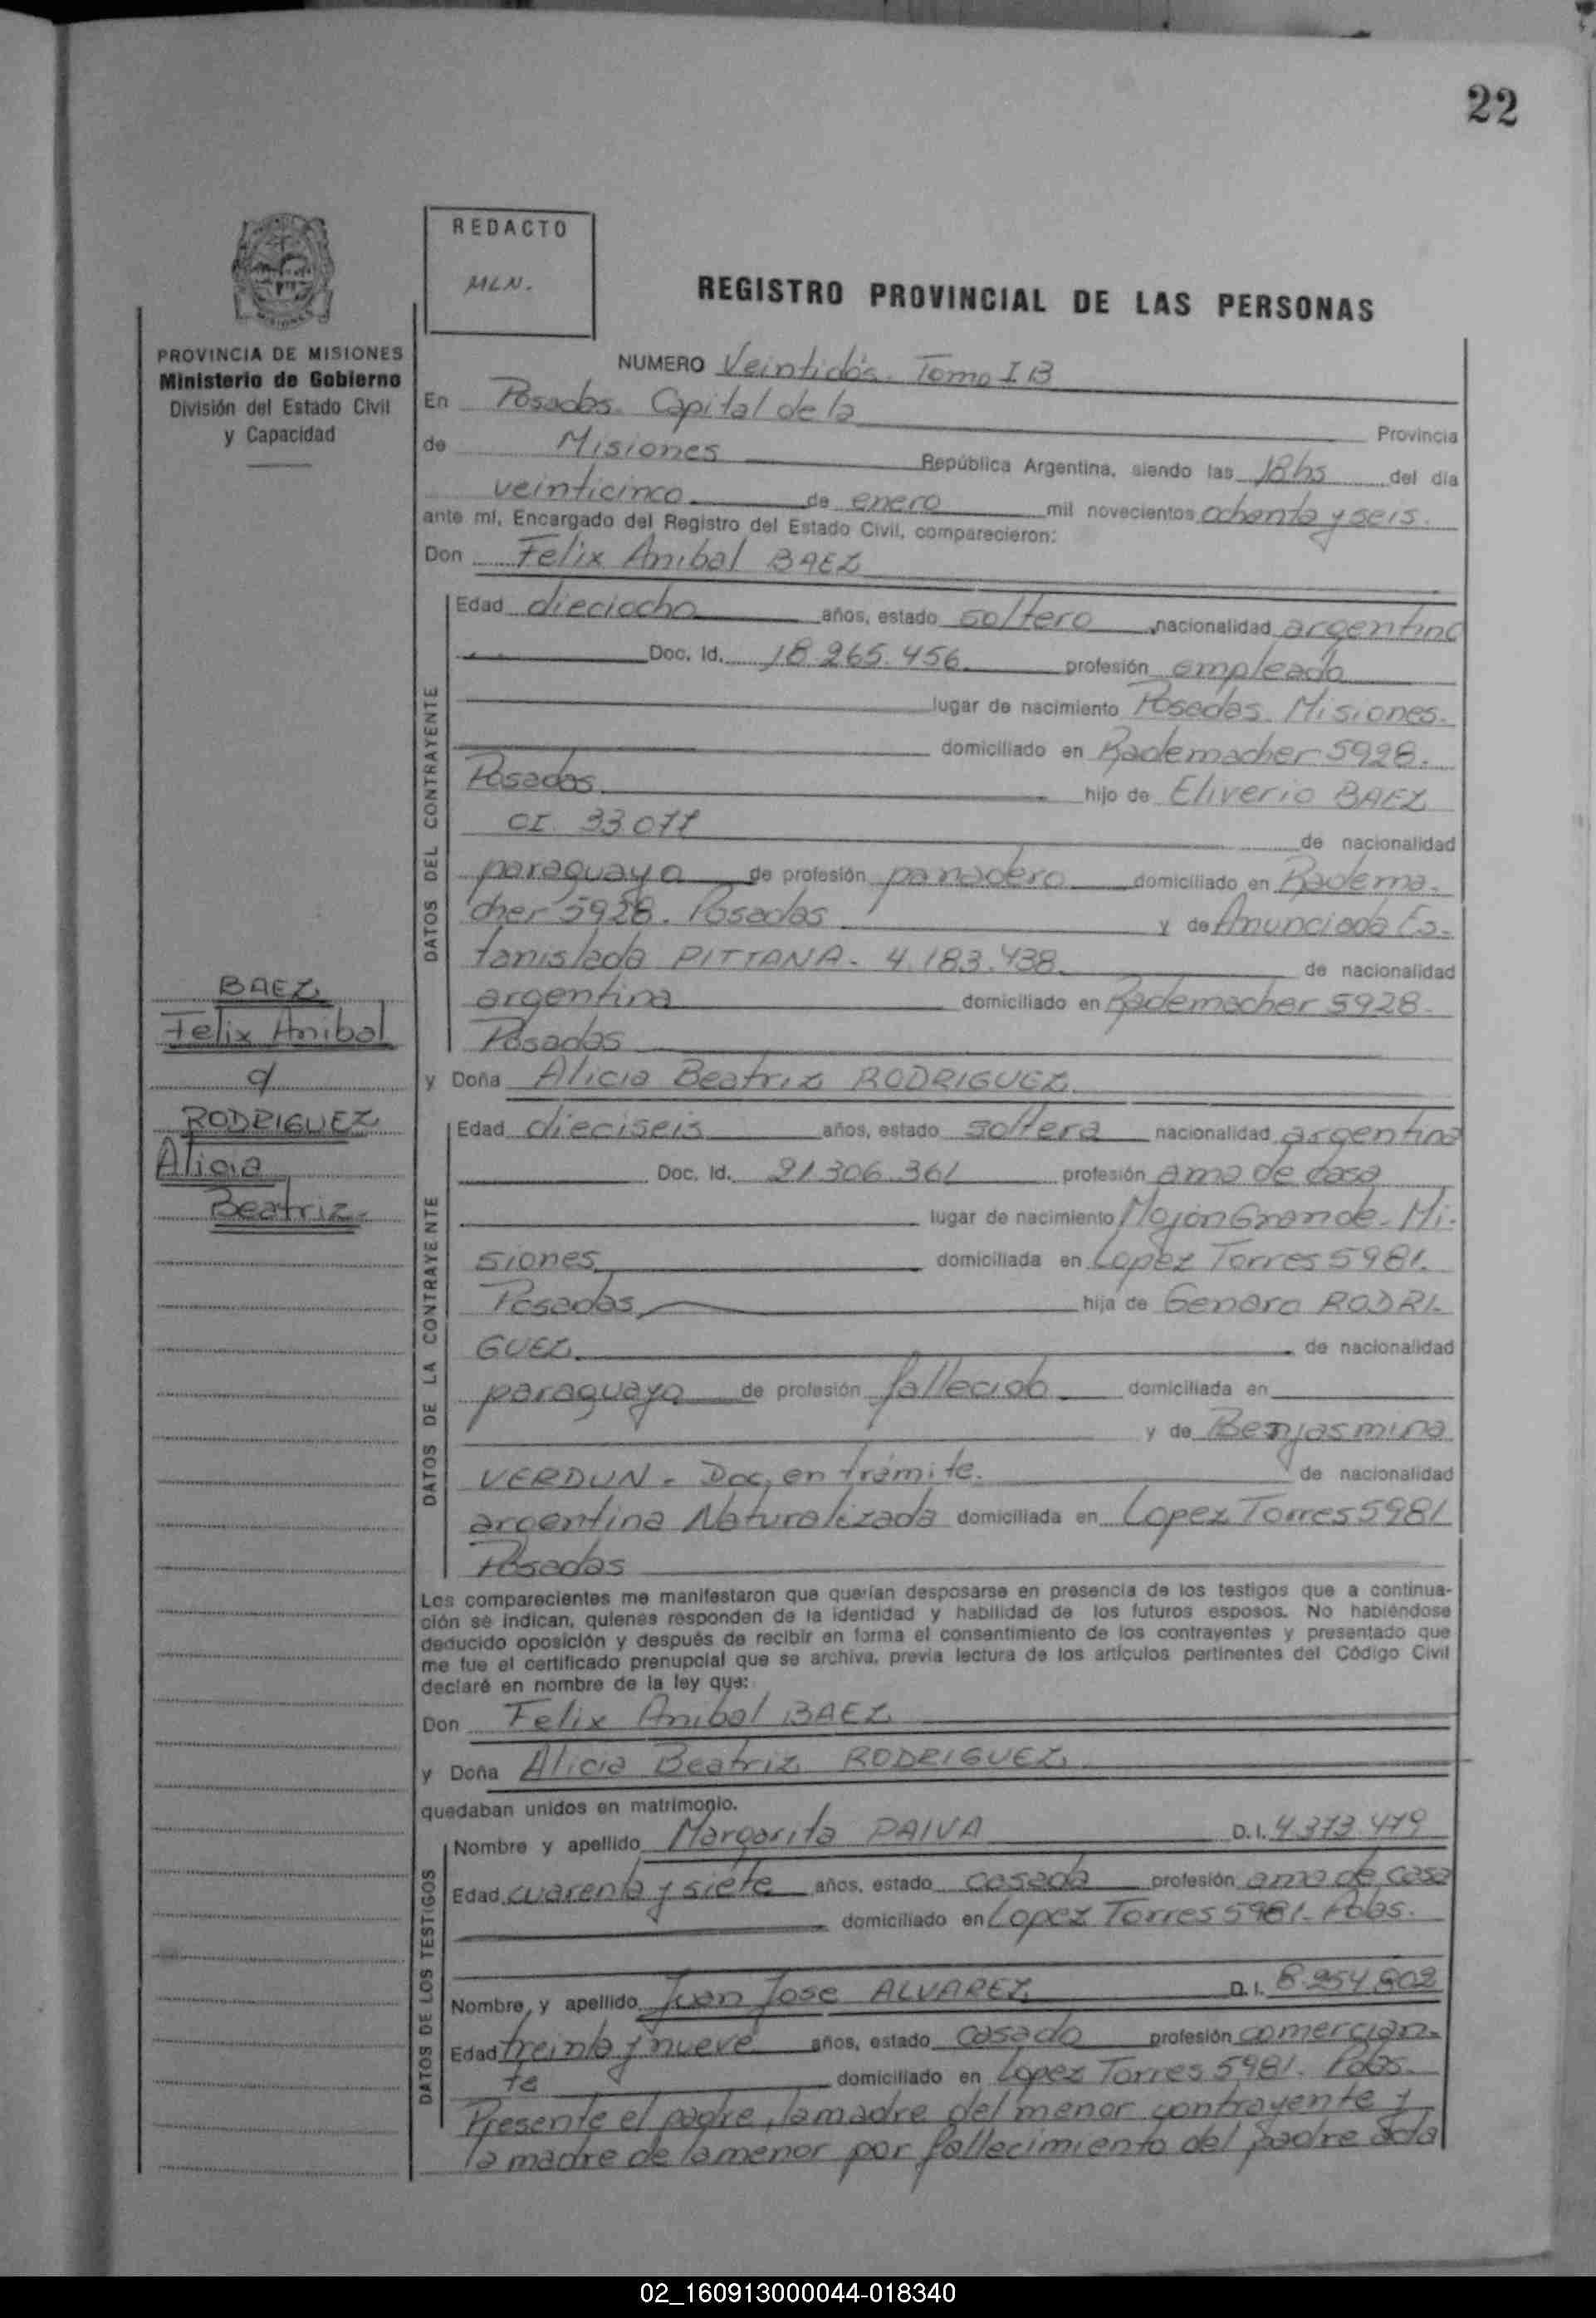 22
REDACTO
MLN.
REGISTRO PROVINCIAL DE LAS PERSONAS
PROVINCIA DE MISIONES
Ministerio de Gobierno
División del Estado Civil
y Capacidad
NUMERO Veintidós. Tomo I B
En Posadas. Capital de la Provincia
de Misiones República Argentina, siendo las 18hs del día
veinticinco de enero mil novecientos ochenta y seis.
ante mí, Encargado del Registro del Estado Civil, comparecieron:
Don Felix Anibal BAEZ
DATOS DEL CONTRAYENTE
Edad dieciocho años, estado soltero nacionalidad argentino
Doc. Id. 18.265.456 profesión empleado
lugar de nacimiento Posadas. Misiones.
domiciliado en Rademacher 5928.
Posadas hijo de Eliverio BAEZ
CI. 33.077 de nacionalidad
paraguaya de profesión panadero domiciliado en Radema-
cher 5928. Posadas y de Anunciada Es-
tanislada PITTANA. 4.183.438 de nacionalidad
argentina domiciliado en Rademacher 5928.
Posadas
BAEZ
Felix Anibal
c/
RODRIGUEZ
Alicia
Beatriz.
y Doña Alicia Beatriz RODRIGUEZ
DATOS DE LA CONTRAYENTE
Edad dieciseis años, estado soltera nacionalidad argentina
Doc. Id. 21.306.361 profesión ama de casa
lugar de nacimiento Mojon Grande. Mi-
siones domiciliada en Lopez Torres 5981.
Posadas hija de Genaro RODRI-
GUEZ de nacionalidad
paraguaya de profesión fallecido domiciliada en
y de Benjasmina
VERDUN. Doc. en tramite. de nacionalidad
argentina Naturalizada domiciliada en Lopez Torres 5981
Posadas
Los comparecientes me manifestaron que querían desposarse en presencia de los testigos que a continua-
ción se indican, quienes responden de la identidad y habilidad de los futuros esposos. No habiéndose
deducido oposición y después de recibir en forma el consentimiento de los contrayentes y presentado que
me fue el certificado prenupcial que se archiva, previa lectura de los artículos pertinentes del Código Civil
declaré en nombre de la ley que:
Don Felix Anibal BAEZ
y Doña Alicia Beatriz RODRIGUEZ
quedaban unidos en matrimonio.
DATOS DE LOS TESTIGOS
Nombre y apellido Margarita PAIVA D.I. 4.373.479
Edad cuarenta y siete años, estado casada profesión ama de casa
domiciliado en Lopez Torres 5981. Pdas.
Nombre y apellido Juan Jose ALVAREZ D.I. 8.254.802
Edad treinta y nueve años, estado casado profesión comercian-
te domiciliado en Lopez Torres 5981. Pdas.
Presente el padre, la madre del menor contrayente y
la madre de la menor por fallecimiento del padre
02_160913000044-018340